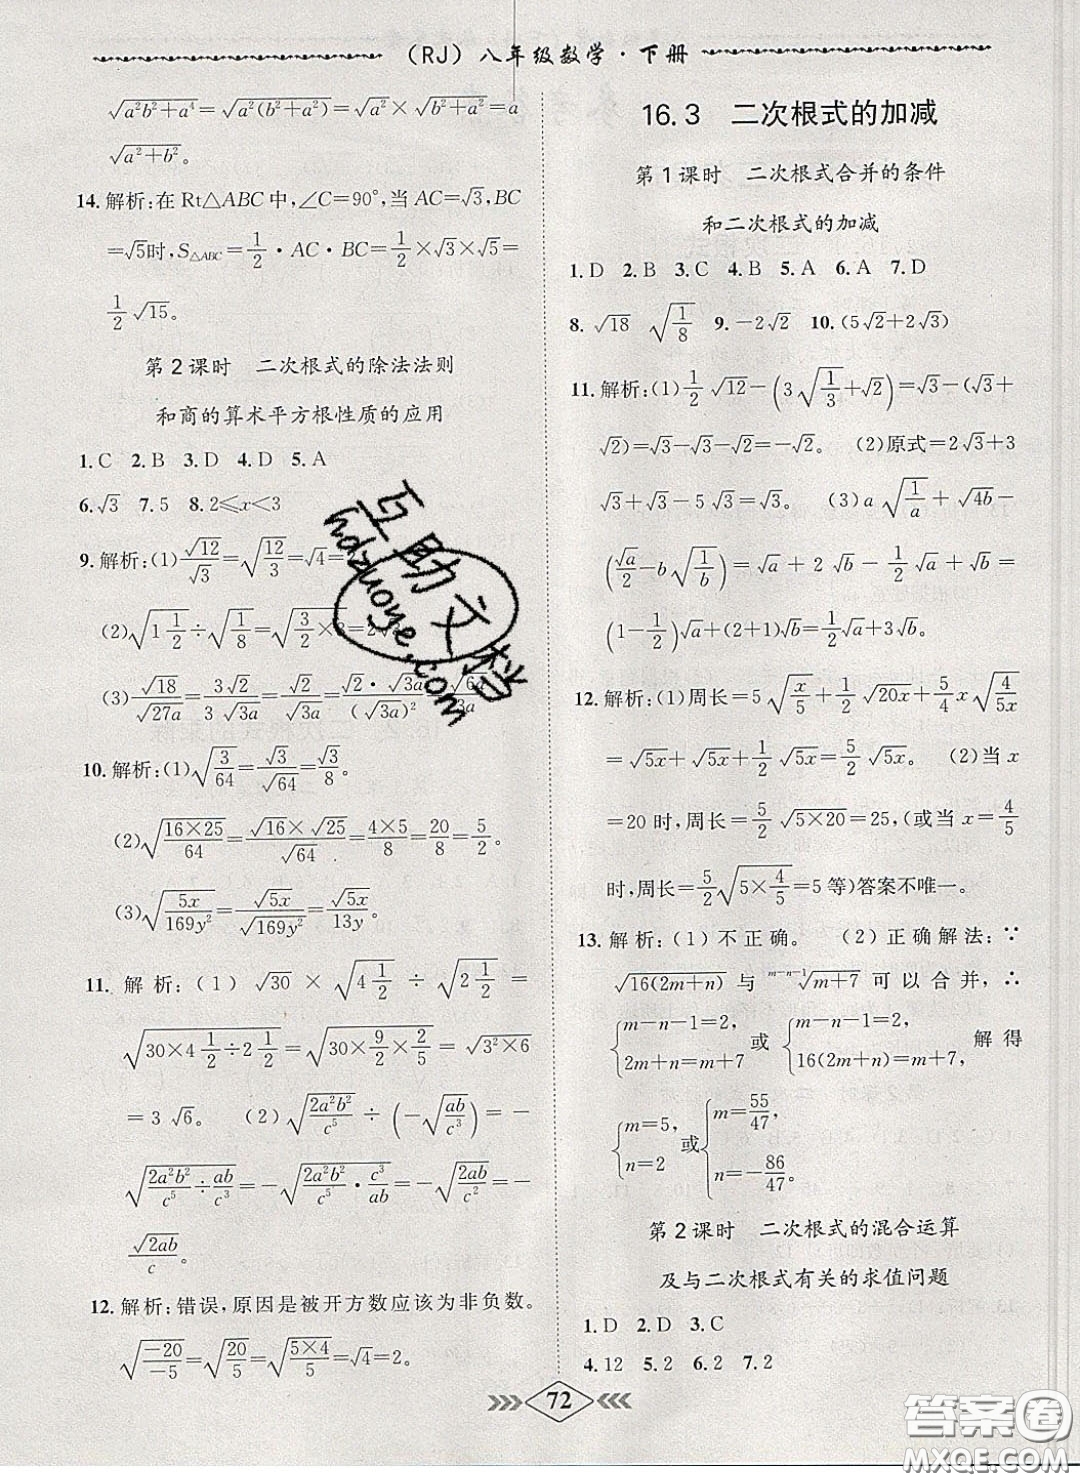 (RJ) 八年级数学·下册
√(a²b²+a⁴)=√(a²(b²+a²))=√(a²)×√(b²+a²)=a
√(a²+b²)。
14. 解析:在 Rt△ABC 中,∠C=90°,当 AC=√3,BC
=√5时,S△ABC=1/2·AC·BC=1/2×√3×√5=
1/2 √15。
第2课时 二次根式的除法法则
和商的算术平方根性质的应用
1. C 2. B 3. D 4. D 5. A
6. √3 7. 5 8. 2≤x<3
9. 解析:(1)√12/√3=√(12/3)=√4=
(2)√(1 1/2)÷√(1/8)=√(3/2×
(3)√18/√(27a)=3√2/(3√(3a))=√2/√(3a)=(√2·√(3a))/(√(3a))²
10. 解析:(1)√(3/64)=√3/√64=√3/8。
(2)√((16×25)/64)=(√16×√25)/√64=(4×5)/8=20/8=5/2。
(3)√(5x/(169y²))=√(5x)/√(169y²)=√(5x)/(13y)。
11. 解析:(1) √30 × √(4 1/2) ÷ √(2 1/2) =
√(30×4 1/2÷2 1/2)=√(30×9/2×2/5)=√(3²×6)
=3 √6。 (2) √(2a²b²/c⁵) ÷ (−√(ab/c³)) = −
√(2a²b²/c⁵÷ab/c³)=−√(2a²b²/c⁵·c³/ab)=−√(2ab/c²)=−
√(2ab)/c。
12. 解析:错误,原因是被开方数应该为非负数。
√(−20/−5)=√(20/5)=√((5×4)/5)=√4=2。
16.3 二次根式的加减
第1课时 二次根式合并的条件
和二次根式的加减
1. D 2. B 3. C 4. B 5. A 6. A 7. D
8. √18 √(1/8) 9. −2√2 10. (5√2+2√3)
11. 解析:(1)1/2 √12−(3√(1/3)+√2)=√3−(√3+
√2)=√3−√3−√2=−√2。 (2)原式=2√3+3
√3+√3−5√3=√3。 (3) a√(1/a)+√(4b)−
(√a/2−b√(1/b))=√a+2√b−1/2√a+√b=
(1−1/2)√a+(2+1)√b=1/2√a+3√b。
12. 解析:(1)周长=5√(x/5)+1/2√(20x)+5/4 x√(4/5x)
=√(5x)+√(5x)+1/2√(5x)=5/2√(5x)。 (2)当x
=20时,周长=5/2 √(5×20)=25,(或当x=4/5
时,周长=5/2√(5×4/5)=5等)答案不唯一。
13. 解析:(1)不正确。 (2)正确解法:∵
√(16(2m+n)) 与 ᵐ⁻ⁿ⁻¹√(m+7) 可以合并,∴
{m−n−1=2, 2m+n=m+7 或 {m−n−1=2, 16(2m+n)=m+7, 解得
{m=5, n=2 或 {m=55/47, n=−86/47。
第2课时 二次根式的混合运算
及与二次根式有关的求值问题
1. D 2. D 3. C
4. 12 5. 2 6. 2 7. 2
72
互助文档
hdzuoye.com
答案圈
MXQE.COM